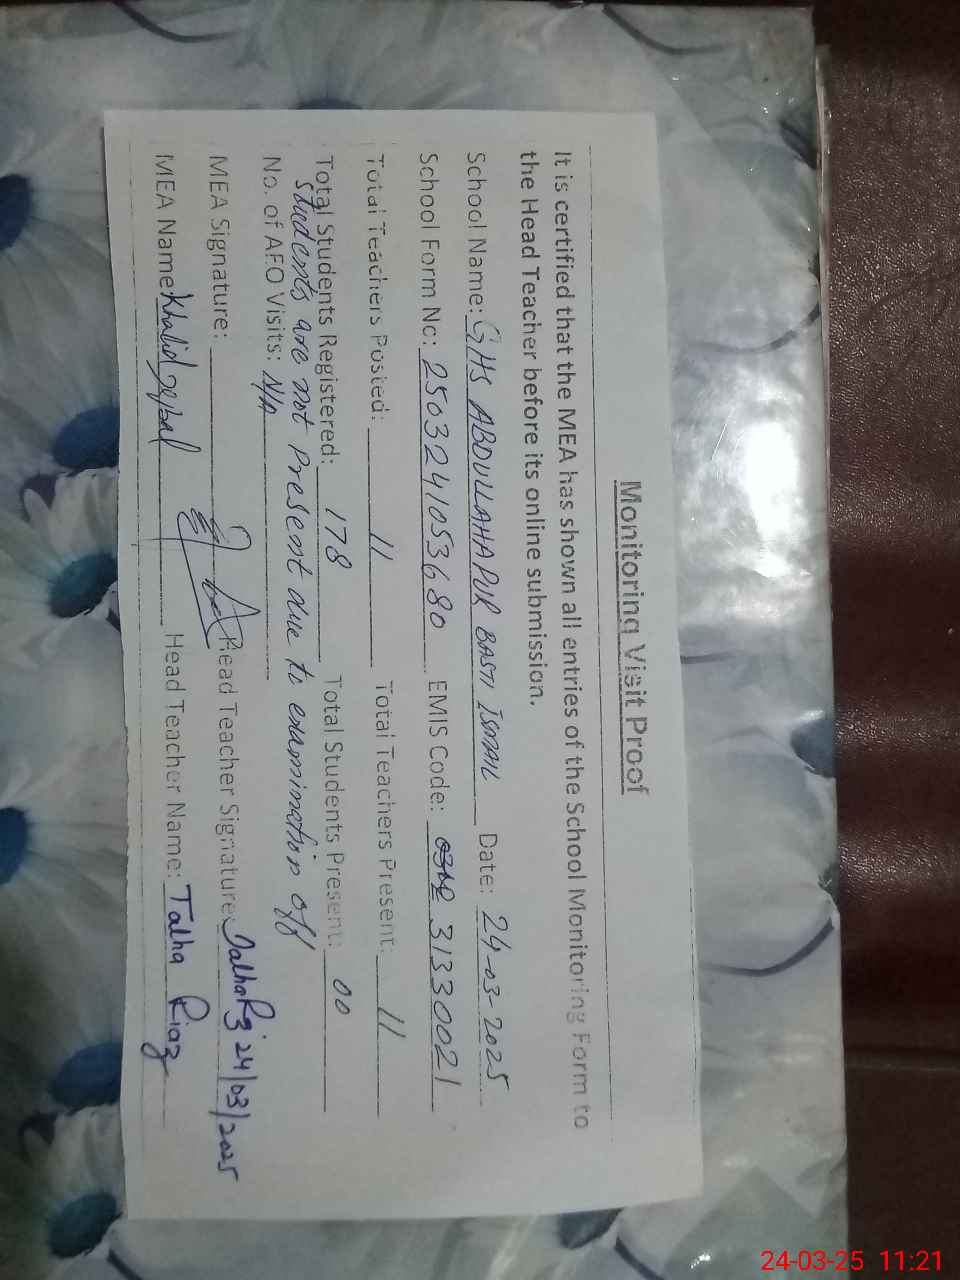 Monitoring Visit Proof
It is certified that the MEA has shown all entries of the School Monitoring Form to
the Head Teacher before its online submission.
School Name: GHS ABDULLAHAPUR BASTI ISMAIL Date: 24-03-2025
School Form No: 2503241053680 EMIS Code: 31330021
Total Teachers Posted: 11 Total Teachers Present: 11
Total Students Registered: 178 Total Students Present: 00
Students are not Present due to examination off
No. of AEO Visits: N/A
MEA Signature: Head Teacher Signature: 24/03/2025
MEA Name: Khalid Iqbal Head Teacher Name: Talha Riaz
24-03-25 11:21